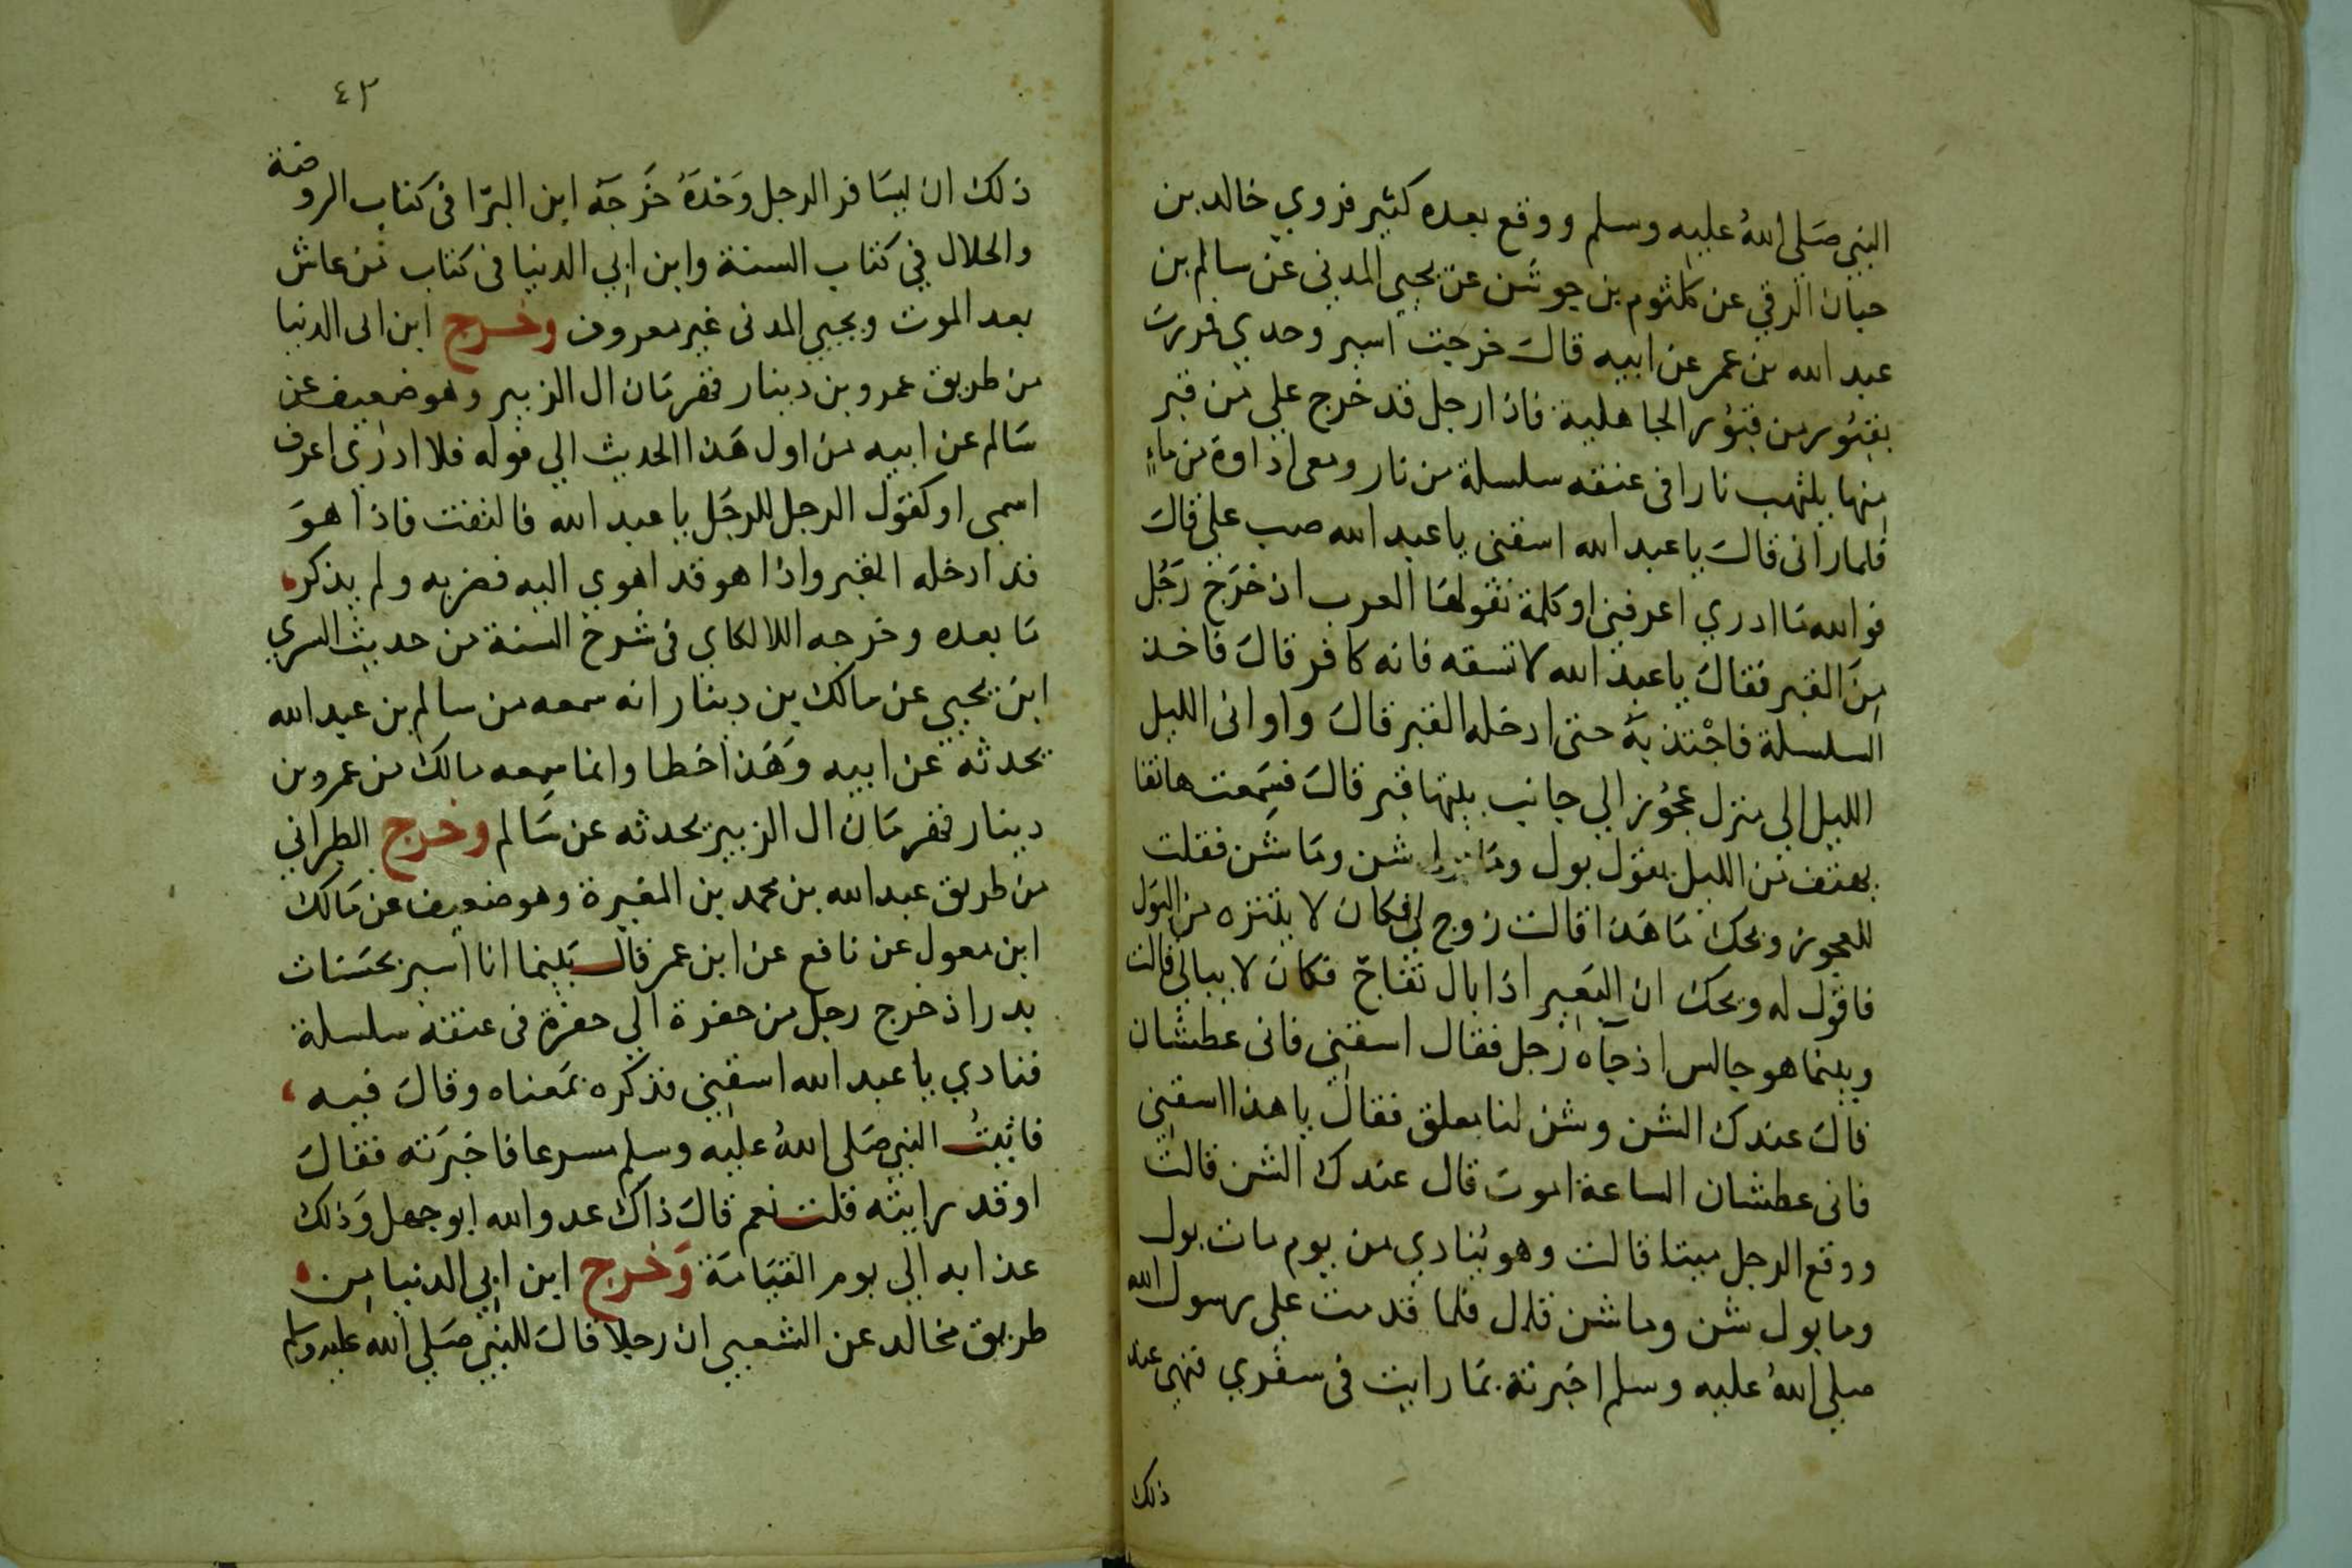 النبي صَلى اللهُ عليه وسلم ووقع بعده كثير فروي خالد بن
حيان الرقي عن كلثوم بن جوشن عن يحيى المدنى عن سالم بن
عبد الله بن عمر عن ابيه قالَ خرجت اسير وحدي فمررت
بقبُور من قبُور الجاهلية فاذا رجل قد خرج على من قبر
منها يلتهب نارا فى عنقه سلسلة من نار ومعى اداوة من ماءٍ
فلما رانى قالَ يا عبد الله اسقنى يا عبد الله صب على قالَ
فوالله مَا ادري اعرفنى او كلمة تقولهَا العرب اذ خرَج رَجُل
مِنَ القبر فقالَ يا عبد الله لا تسقه فانه كافر قالَ فاخذ
السلسلة فاجْتذ بهَ حتى ادخله القبر قالَ واوانى الليل
الليل الى منزل عجُوز الي جانب بيتها قبر قالَ فسَمعت هاتفا
يهتف من الليل يقول بول ومَا بول شن ومَا شن فقلت
للعجوز ويحك مَا هَذا قالت زوج لى فكان لا يتنزه من البَول
فاقول له ويحك ان البَعير اذا بال تفاجّ فكانَ لا يبالى قالت
وبينما هو جالس اذ جآه رَجل فقال اسقنى فانى عطشان
قالَ عندك الشن وشن لنا معلق فقال يا هذا اسقني
فانى عطشان الساعة اموت قال عندك الشن قالت
ووقع الرجل ميتا قالت وهو ينادي من يوم مات بول
وما بول شن وما شن قال فلما قدمت على رسول الله
صلى اللهُ عليه وسلم اخبرته بمَا رايت فى سفري فنهى عند
ذلك
٤٣
ذلك ان يسَافر الرجل وَحْدَهُ خرَجهَ ابن البرّا فى كتاب الروضة
والخلال في كتاب السنة وابن ابي الدنيا فى كتاب مَن عاش
بعد الموت ويحيى المدنى غير معروف وخرج ابن ابى الدنيا
من طريق عمرو بن دينار قهرمَان ال الزبير وهو ضعيف عن
سَالم عن ابيه من اول هَذا الحديث الي قوله فلا ادرى اعرف
اسمى او كقول الرجل للرجُل يا عبد الله فالتفت فاذا هوَ
قد ادخله القبر واذا هو قد اهوي اليه فضربه ولم يذكر
مَا بعده وخرجه اللالكاي فى شرح السنة من حديث السري
ابن يحيي عن مالك بن دينار انه سمعه من سالم بن عبد الله
يحدثه عن ابيه وهَذا خطا وانما سمعه مالك من عمرو بن
دينار قهرمَان ال الزبير يحدثه عن سَالم وخرج الطبراني
من طريق عبد الله بن محمد بن المغيرة وهو ضعيف عن مَالك
ابن معول عن نافع عن ابن عمر قال بَينما انا اسير بجنبَات
بدر اذ خرج رجل من حفرة الي حفرة فى عنقه سلسلة
فنادي يا عبد الله اسقني فذكره بمَعناه وقالَ فيه
فاتيتُ النبي صَلى اللهُ عليه وسلم مسرعا فاخبَرته فقالَ
اوقد رايته قلت نعم قالَ ذاك عدو الله ابو جهل وَذلك
عذابه الى يوم القيَامَة وَخرج ابن ابي الدنيا من
طريق مخالد عن الشعبي ان رجلا قالَ للنبي صَلي الله عليه وسلم